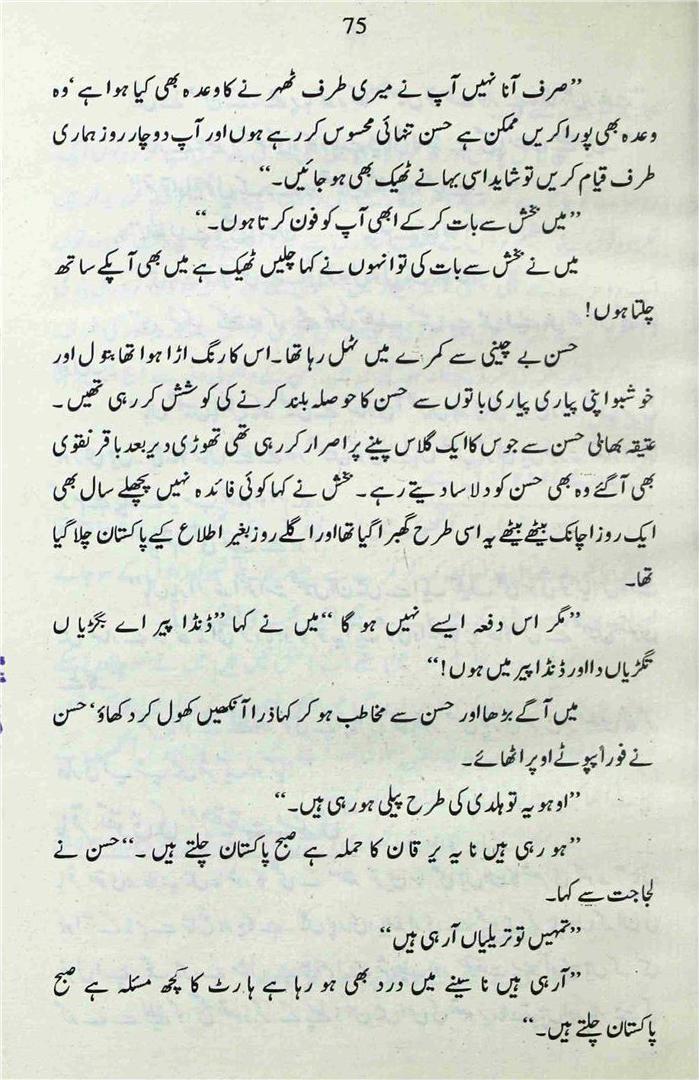 75
”صرف آنا نہیں آپ نے میری طرف ٹھہرنے کا وعدہ بھی کیا ہوا ہے‘ وہ
وعدہ بھی پورا کریں ممکن ہے حسن تنہائی محسوس کر رہے ہوں اور آپ دو چار روز ہماری
طرف قیام کریں تو شاید اسی بہانے ٹھیک بھی ہو جائیں۔“
”میں بخش سے بات کر کے ابھی آپ کو فون کرتا ہوں۔“
میں نے بخش سے بات کی تو انہوں نے کہا چلیں ٹھیک ہے میں بھی آپکے ساتھ
چلتا ہوں!
حسن بے چینی سے کمرے میں ٹہل رہا تھا۔ اس کا رنگ اڑا ہوا تھا بتول اور
خوشبو اپنی پیاری پیاری باتوں سے حسن کا حوصلہ بلند کرنے کی کوشش کر رہی تھیں۔
عتیقہ بھابی حسن سے جوس کا ایک گلاس پینے پر اصرار کر رہی تھی تھوڑی دیر بعد باقر نقوی
بھی آ گئے وہ بھی حسن کو دلاسا دیتے رہے۔ بخش نے کہا کوئی فائدہ نہیں پچھلے سال بھی
ایک روز اچانک بیٹھے بیٹھے یہ اسی طرح گھبرا گیا تھا اور اگلے روز بغیر اطلاع کیے پاکستان چلا گیا
تھا۔
”مگر اس دفعہ ایسے نہیں ہو گا“ میں نے کہا ”ڈنڈا پیر اے بگڑیاں
تگڑیاں دا اور ڈنڈا پیر میں ہوں!“
میں آگے بڑھا اور حسن سے مخاطب ہو کر کہا ذرا آنکھیں کھول کر دکھاؤ‘ حسن
نے فوراً پپوٹے اوپر اٹھائے۔
”اوہو یہ تو ہلدی کی طرح پیلی ہو رہی ہیں۔“
”ہو رہی ہیں نا یہ یرقان کا حملہ ہے صبح پاکستان چلتے ہیں۔“ حسن نے
لجاجت سے کہا۔
”تمہیں تو تریلیاں آ رہی ہیں“
”آ رہی ہیں نا سینے میں درد بھی ہو رہا ہے ہارٹ کا کچھ مسئلہ ہے صبح
پاکستان چلتے ہیں۔“